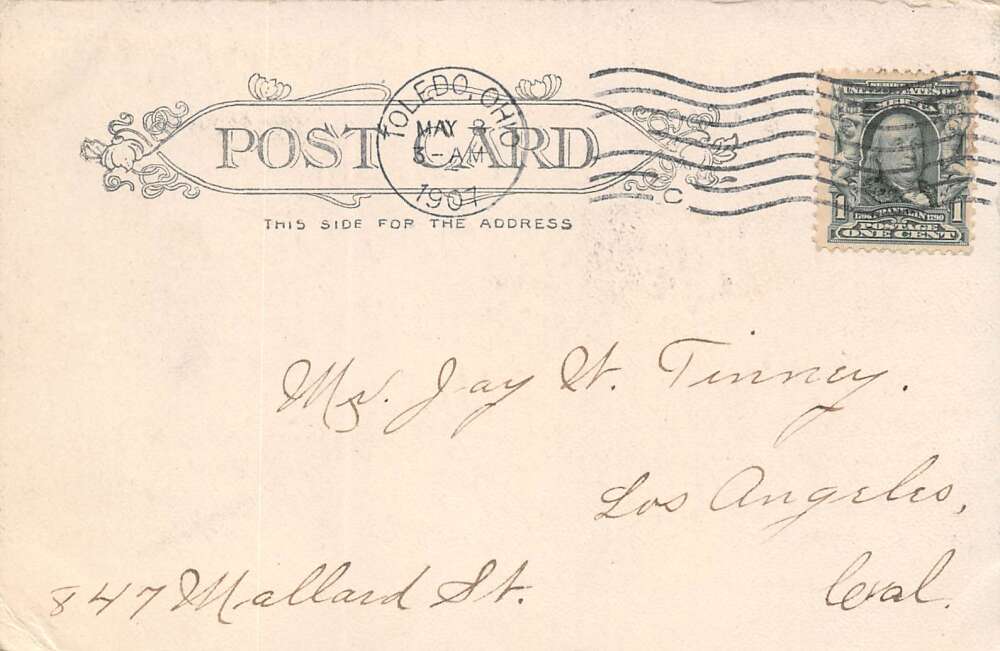 TOLEDO, OHIO
MAY
5-AM
1907
POST CARD
THIS SIDE FOR THE ADDRESS
C
UNITED STATES OF
AMERICA
1 1706 FRANKLIN 1790 1
POSTAGE
ONE CENT
Mr. Jay St. Tinney.
Los Angeles,
847 Mallard St. Cal.